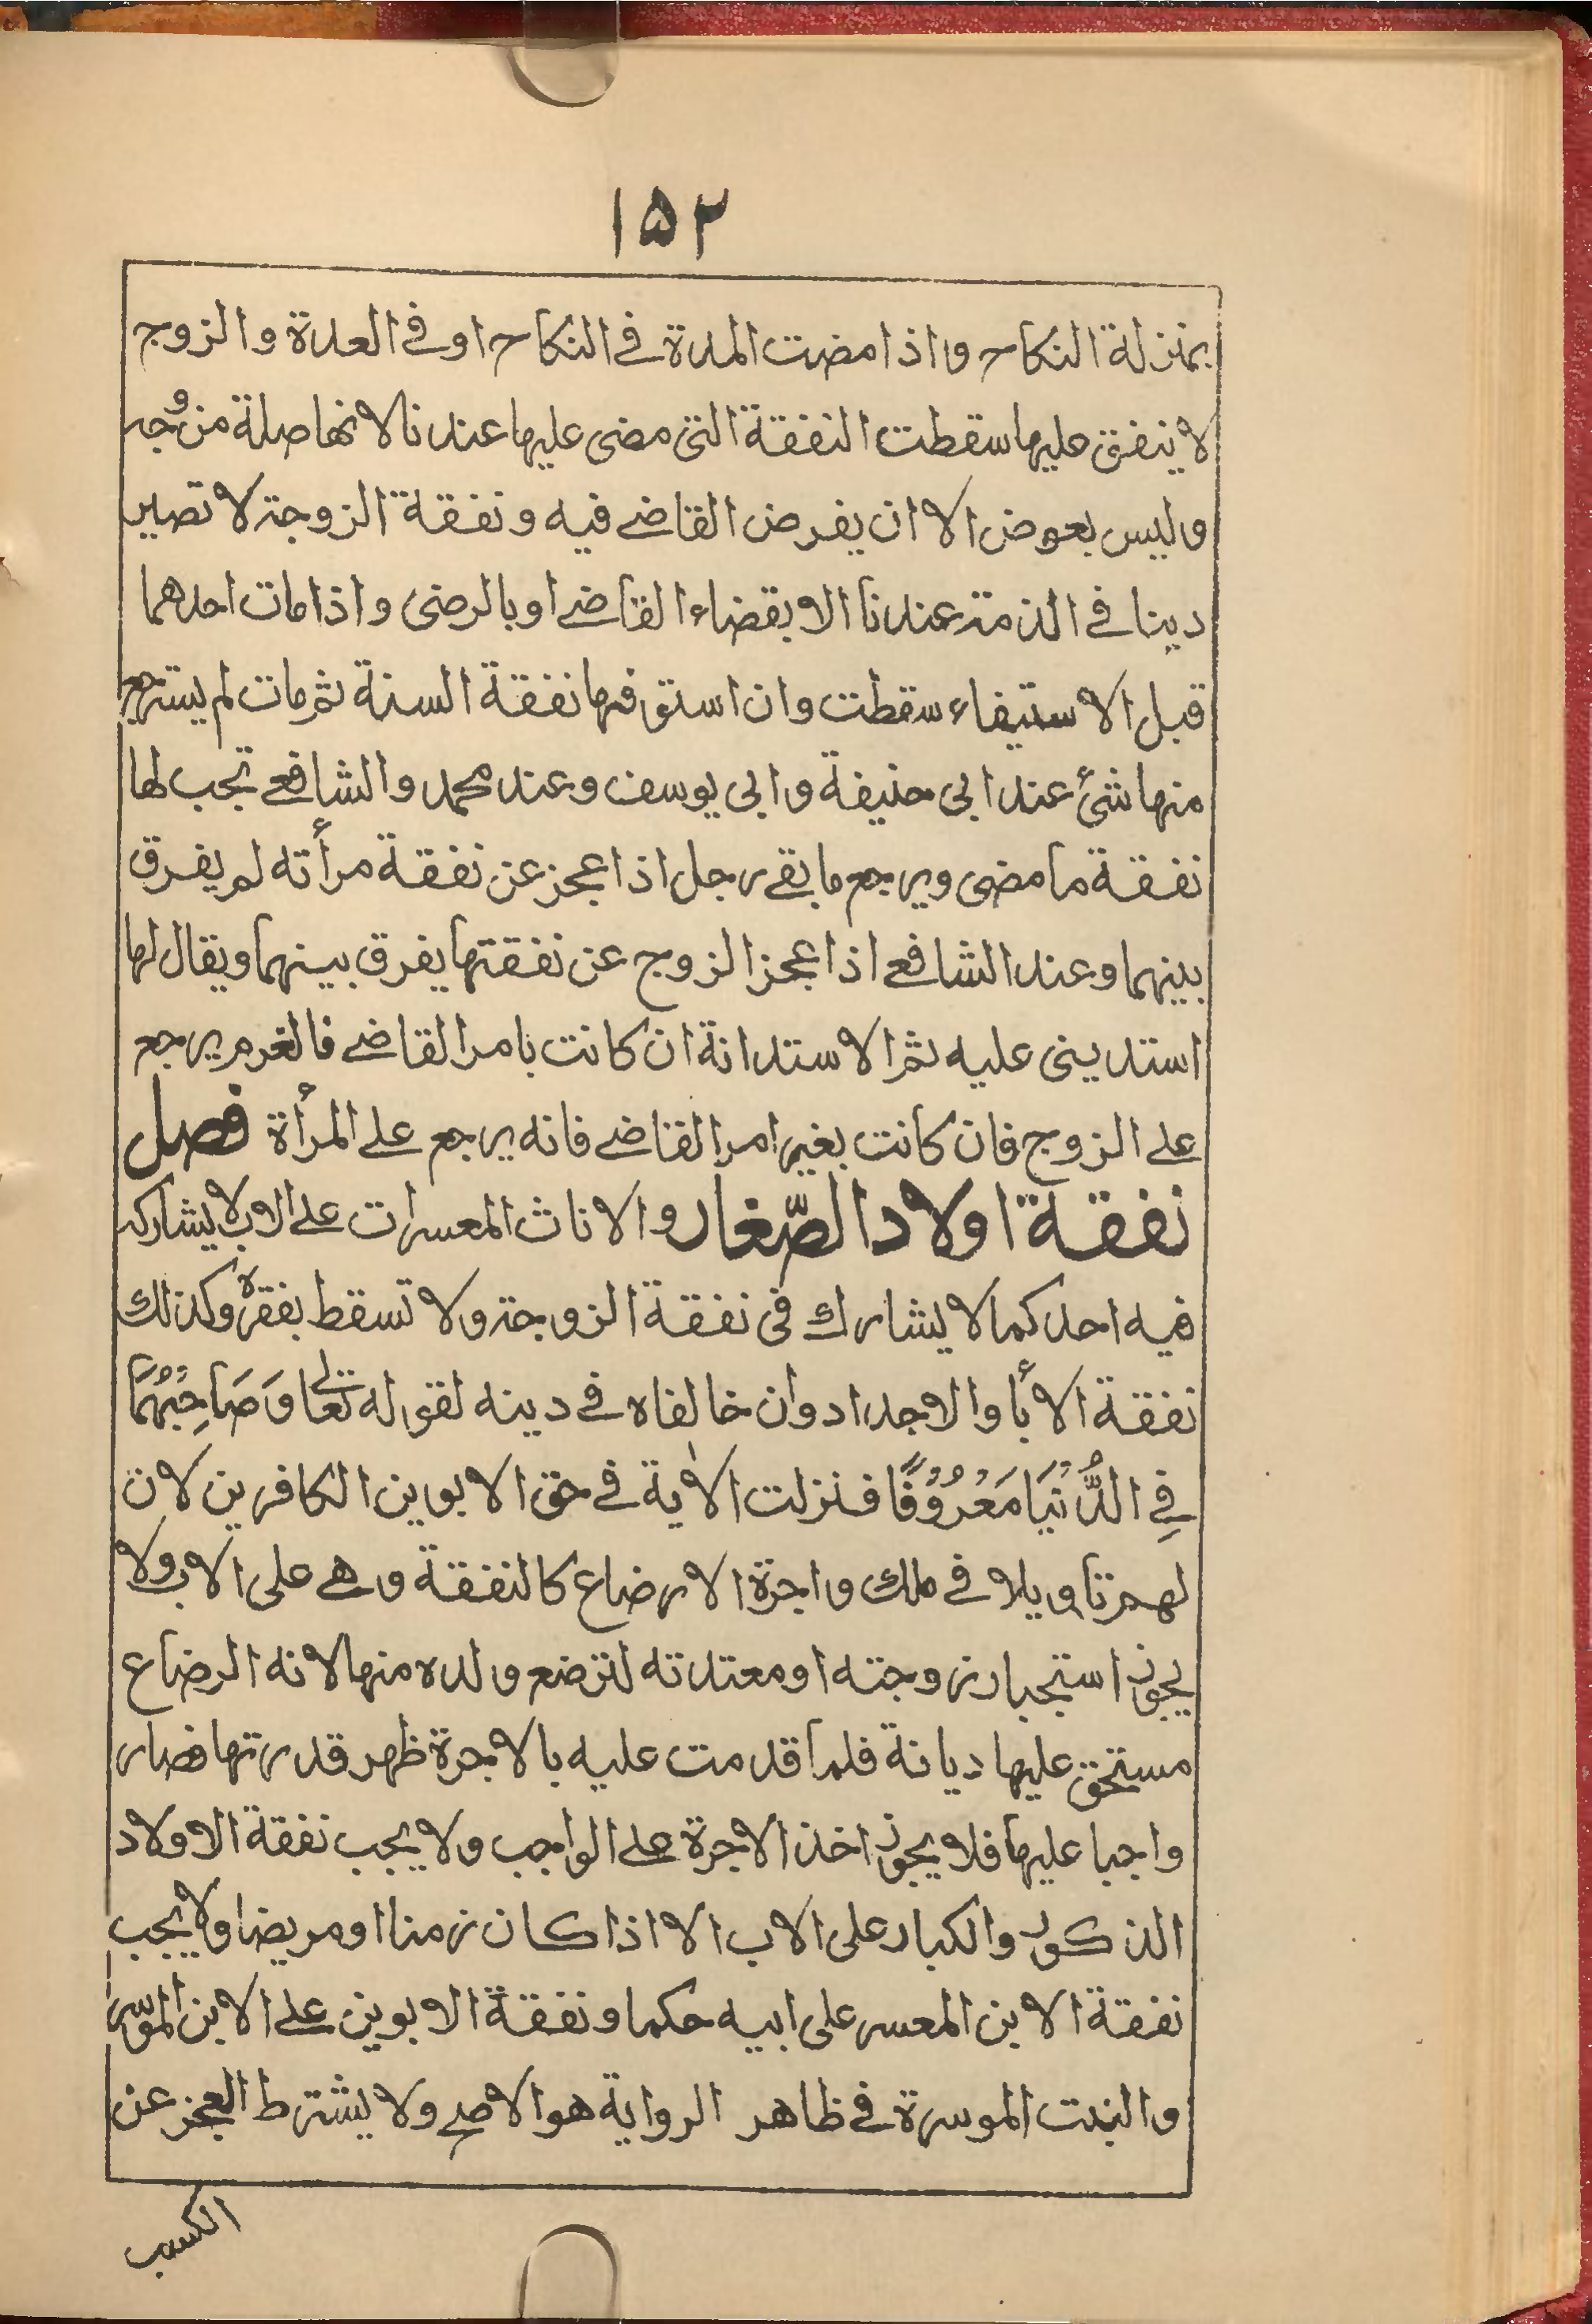 ۱۵۲
بمنزلة النكاح واذا مضت المدة في النكاح او في العدة والزوج
لا ينفق عليها سقطت النفقة التى مضى عليها عندنا لانها صلة من وجه
وليس بعوض الا ان يفرض القاضے فيه ونفقة الزوجة لا تصير
دينا في الذمة عندنا الا بقضاء القاضے او بالرضى واذا مات احدهما
قبل الاستيفاء سقطت وان استوفها نفقة السنة ثم مات لم يسترجع
منها شئ عند ابى حنيفة وابى يوسف وعند محمد والشافعے تجب لها
نفقة ما مضى ويرجع ما بقے رجل اذا عجز عن نفقة مرأته لم يفرق
بينهما وعند الشافعے اذا عجز الزوج عن نفقتها يفرق بينهما ويقال لها
استدينى عليه ثم الاستدانة ان كانت بامر القاضے فالغرم يرجع
علے الزوج فان كانت بغير امر القاضے فانه يرجع علے المرأة فصل
نفقة اولاد الصّغار والاناث المعسرات علے الاب لا يشاركه
فيه احد كما لا يشارك فى نفقة الزوجة ولا تسقط بفقره وكذلك
نفقة الأبا والاجداد وان خالفاه في دينه لقوله تعالى وَصَاحِبْهُمَا
فِي الدُّنْيَا مَعْرُوْفًا فنزلت الاٰية في حق الابوين الكافرين لان
لهم تاويلا في ملك واجرة الارضاع كالنفقة وهے على الاب ولا
يجوز استجبار زوجته او معتدته لترضع ولده منها لانه الرضاع
مستحق عليها ديانة فلما قدمت عليه بالاجرة ظهر قدرتها فصار
واجبا عليها فلا يجوز اخذ الاجرة علے الواجب ولا يجب نفقة الاولاد
الذكور والكبار على الاب الا اذا كان زمنا او مريضا ولا يجب
نفقة الابن المعسر على ابيه حكما ونفقة الابوين علے الابن الموسر
والبنت الموسرة في ظاهر الرواية هو الاصح ولا يشترط العجز عن
الكسب